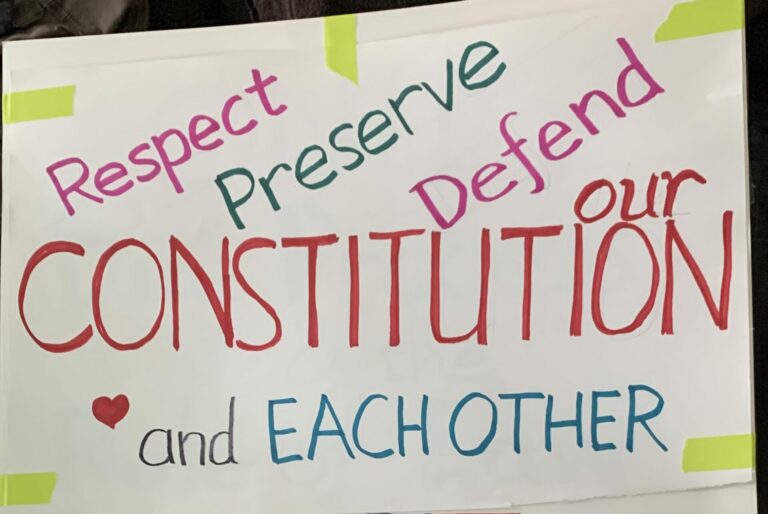 Respect
Preserve
Defend
our
CONSTITUTION
and EACH OTHER